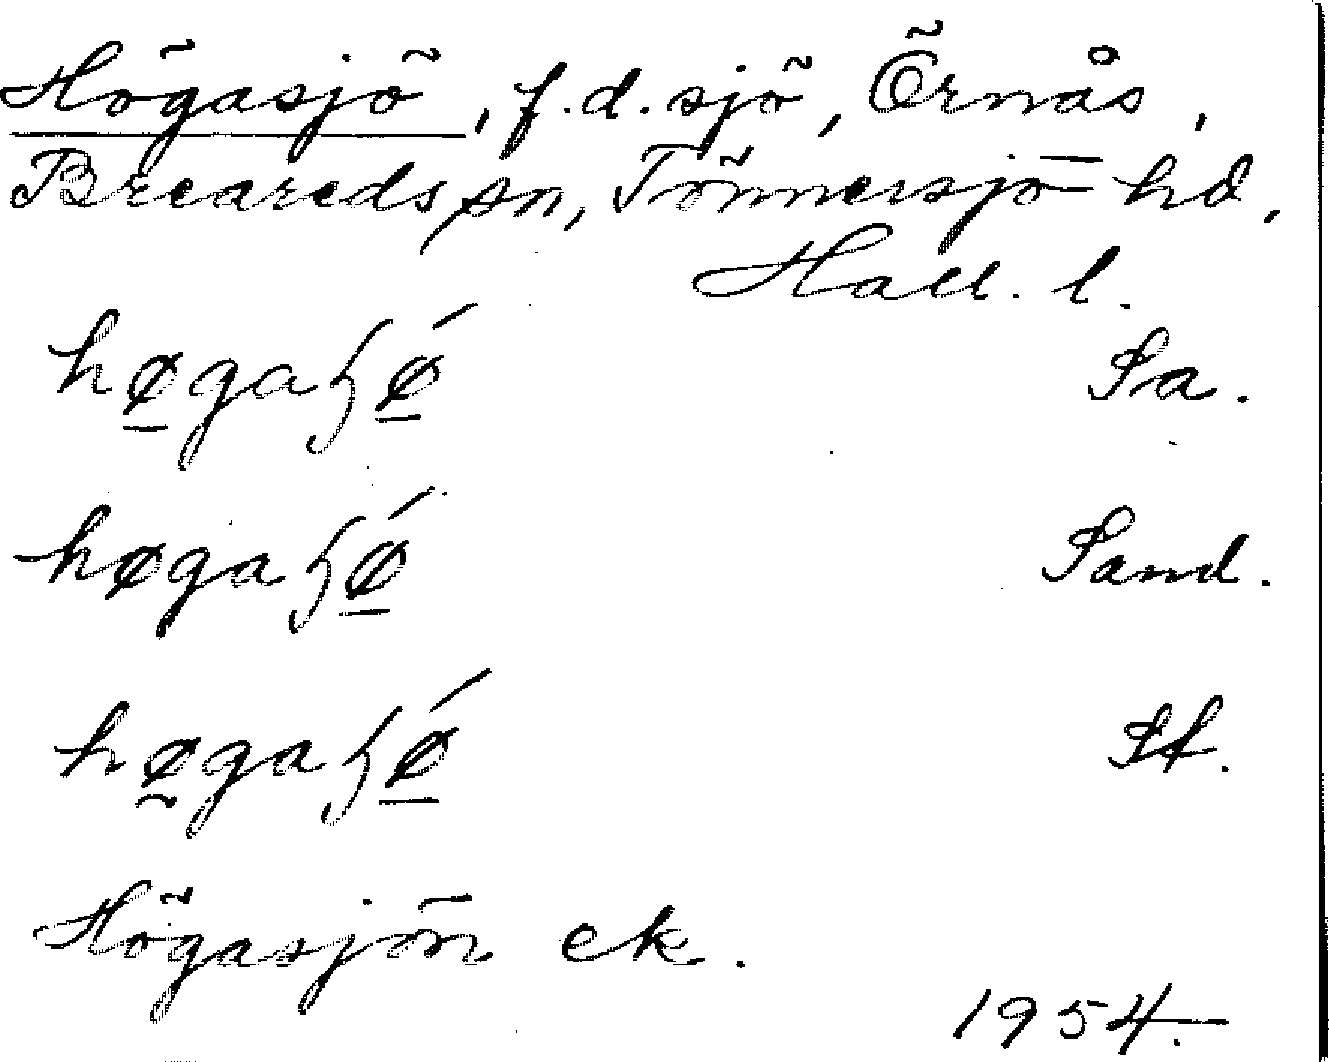 Högasjö, f.d. sjö, Örnås,
Breareds sn, Tönnersjö hd,
Hall. l.
hø̲gaɧǿ̲ Sa.
høgaɧǿ̲ Sand.
hø̰gaɧǿ̲ St.
Högasjön ek.
1954.